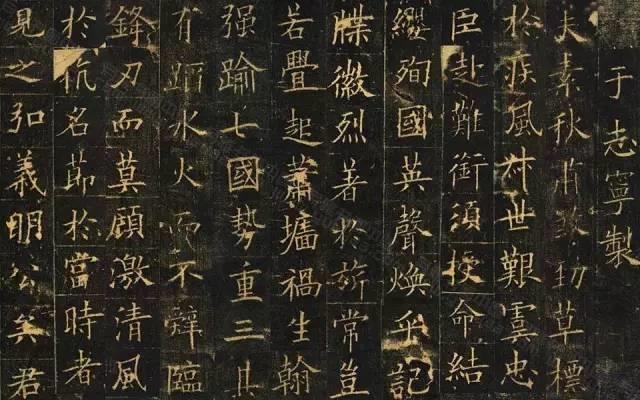 于志寧製
夫素秋肅煞勁草標
於疾風叔世艱虞忠
臣赴難銜須授命結
纓殉國英聲煥乎記
牒徽烈著於旂常豈
若舋起蕭墻禍生翰
强踰七國勢重三其
有蹈水火而不辤臨
鋒刃而莫顧激清風
於抗名節於當時者
見之弘義明公矣君